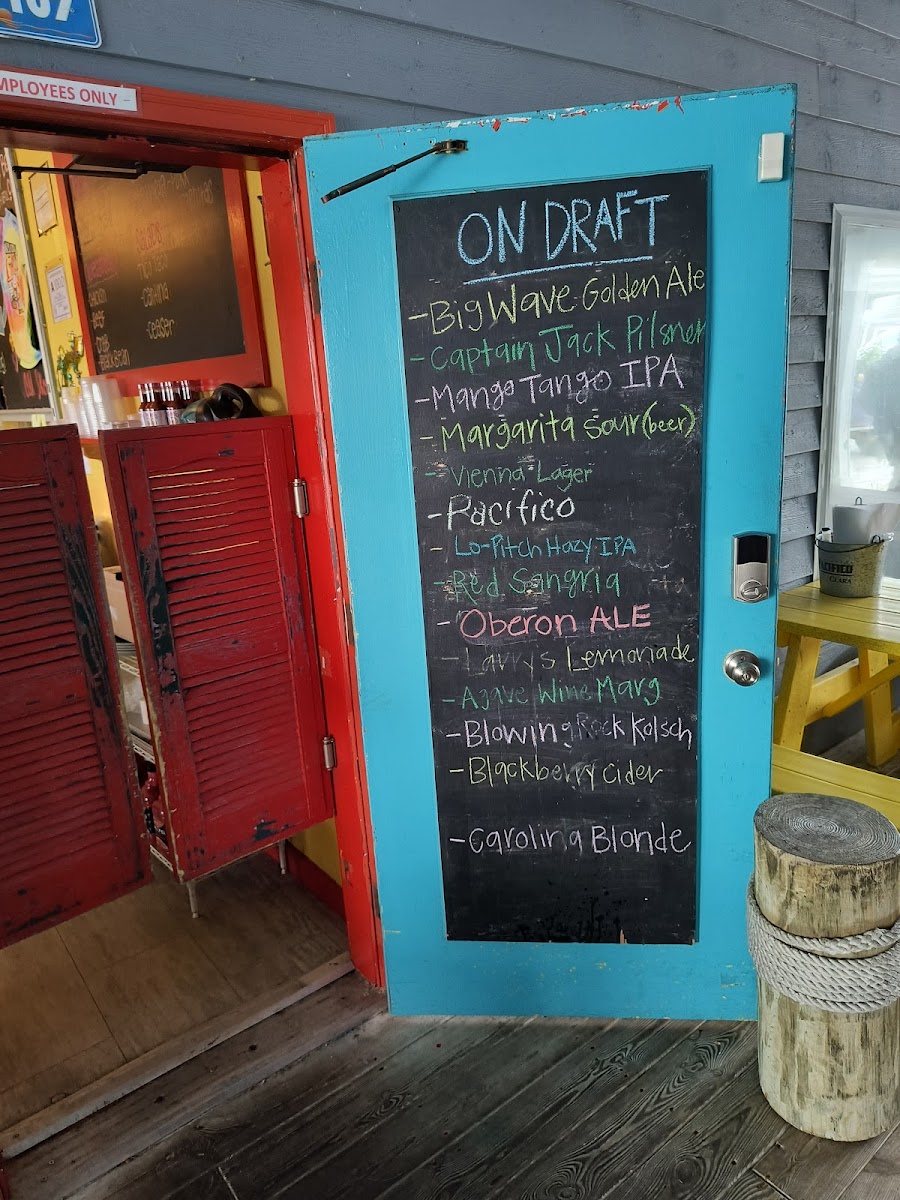 107
MPLOYEES ONLY
ON DRAFT
-Big Wave Golden Ale
-Captain Jack Pilsner
-Mango Tango IPA
-Margarita Sour (beer)
-Vienna Lager
-Pacifico
-Lo-Pitch Hazy IPA
-Red Sangria
-Oberon ALE
-Larrys Lemonade
-Agave Wine Marg
-Blowing Rock Kolsch
-Blackberry Cider
-Carolina Blonde
-ceaser
-Black Bean
PACIFICO
CLARA